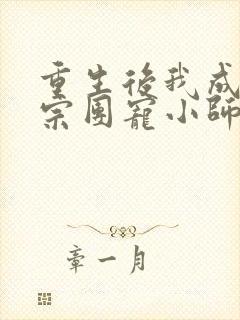 重生後我成
宗團寵小師
章一月